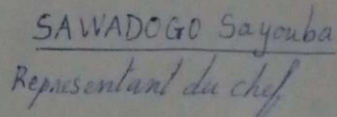 SAWADOGO Sayouba
Représentant du chef